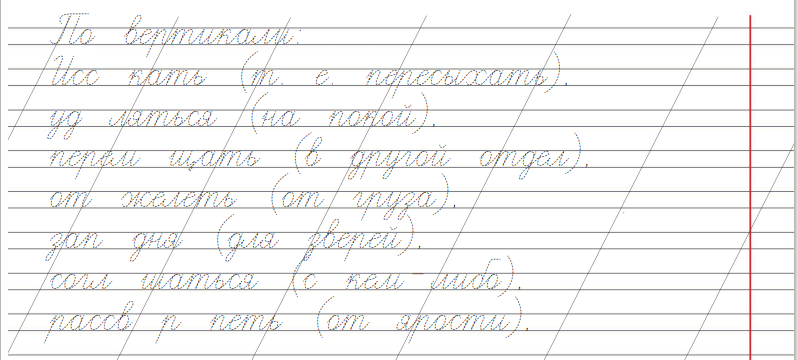 По вертикали:
Исс кать (т. е. пересыхать).
уд ляться (на покой).
перем щать (в другой отдел).
от желеть (от груза).
зап дня (для зверей).
согл шаться (с кем-либо).
рассв р петь (от ярости).